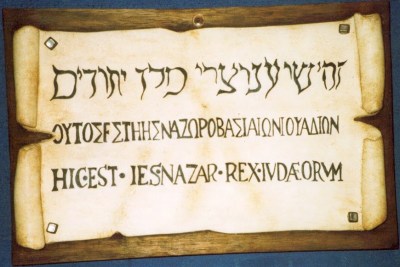 זה ישיע נוצרי מלך יהודים
ΟΥΤΟΣΕΣΤΗΗΣΝΑΖΩΡΟΒΑΣΙΑΙΩΝΙΟΥΑΔΙΩΝ
HIC·EST · IES·NAZAR · REX·IVDÆORVM